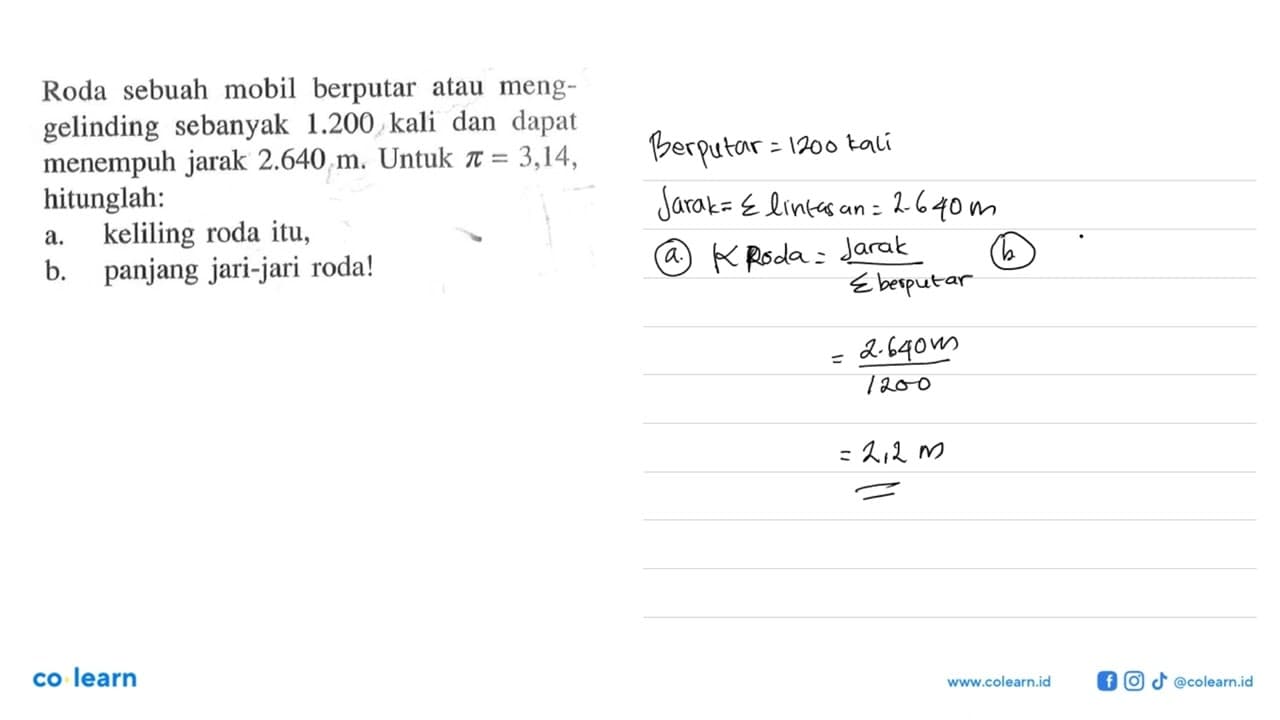 Roda sebuah mobil berputar atau meng-
gelinding sebanyak 1.200 kali dan dapat
menempuh jarak 2.640 m. Untuk π = 3,14,
hitunglah:
a. keliling roda itu,
b. panjang jari-jari roda!
Berputar = 1200 kali
Jarak = Σ lintasan = 2.640 m
a. K Roda = Jarak
Σ berputar
= 2.640 m
1200
= 2,2 m
b
co learn
www.colearn.id
@colearn.id